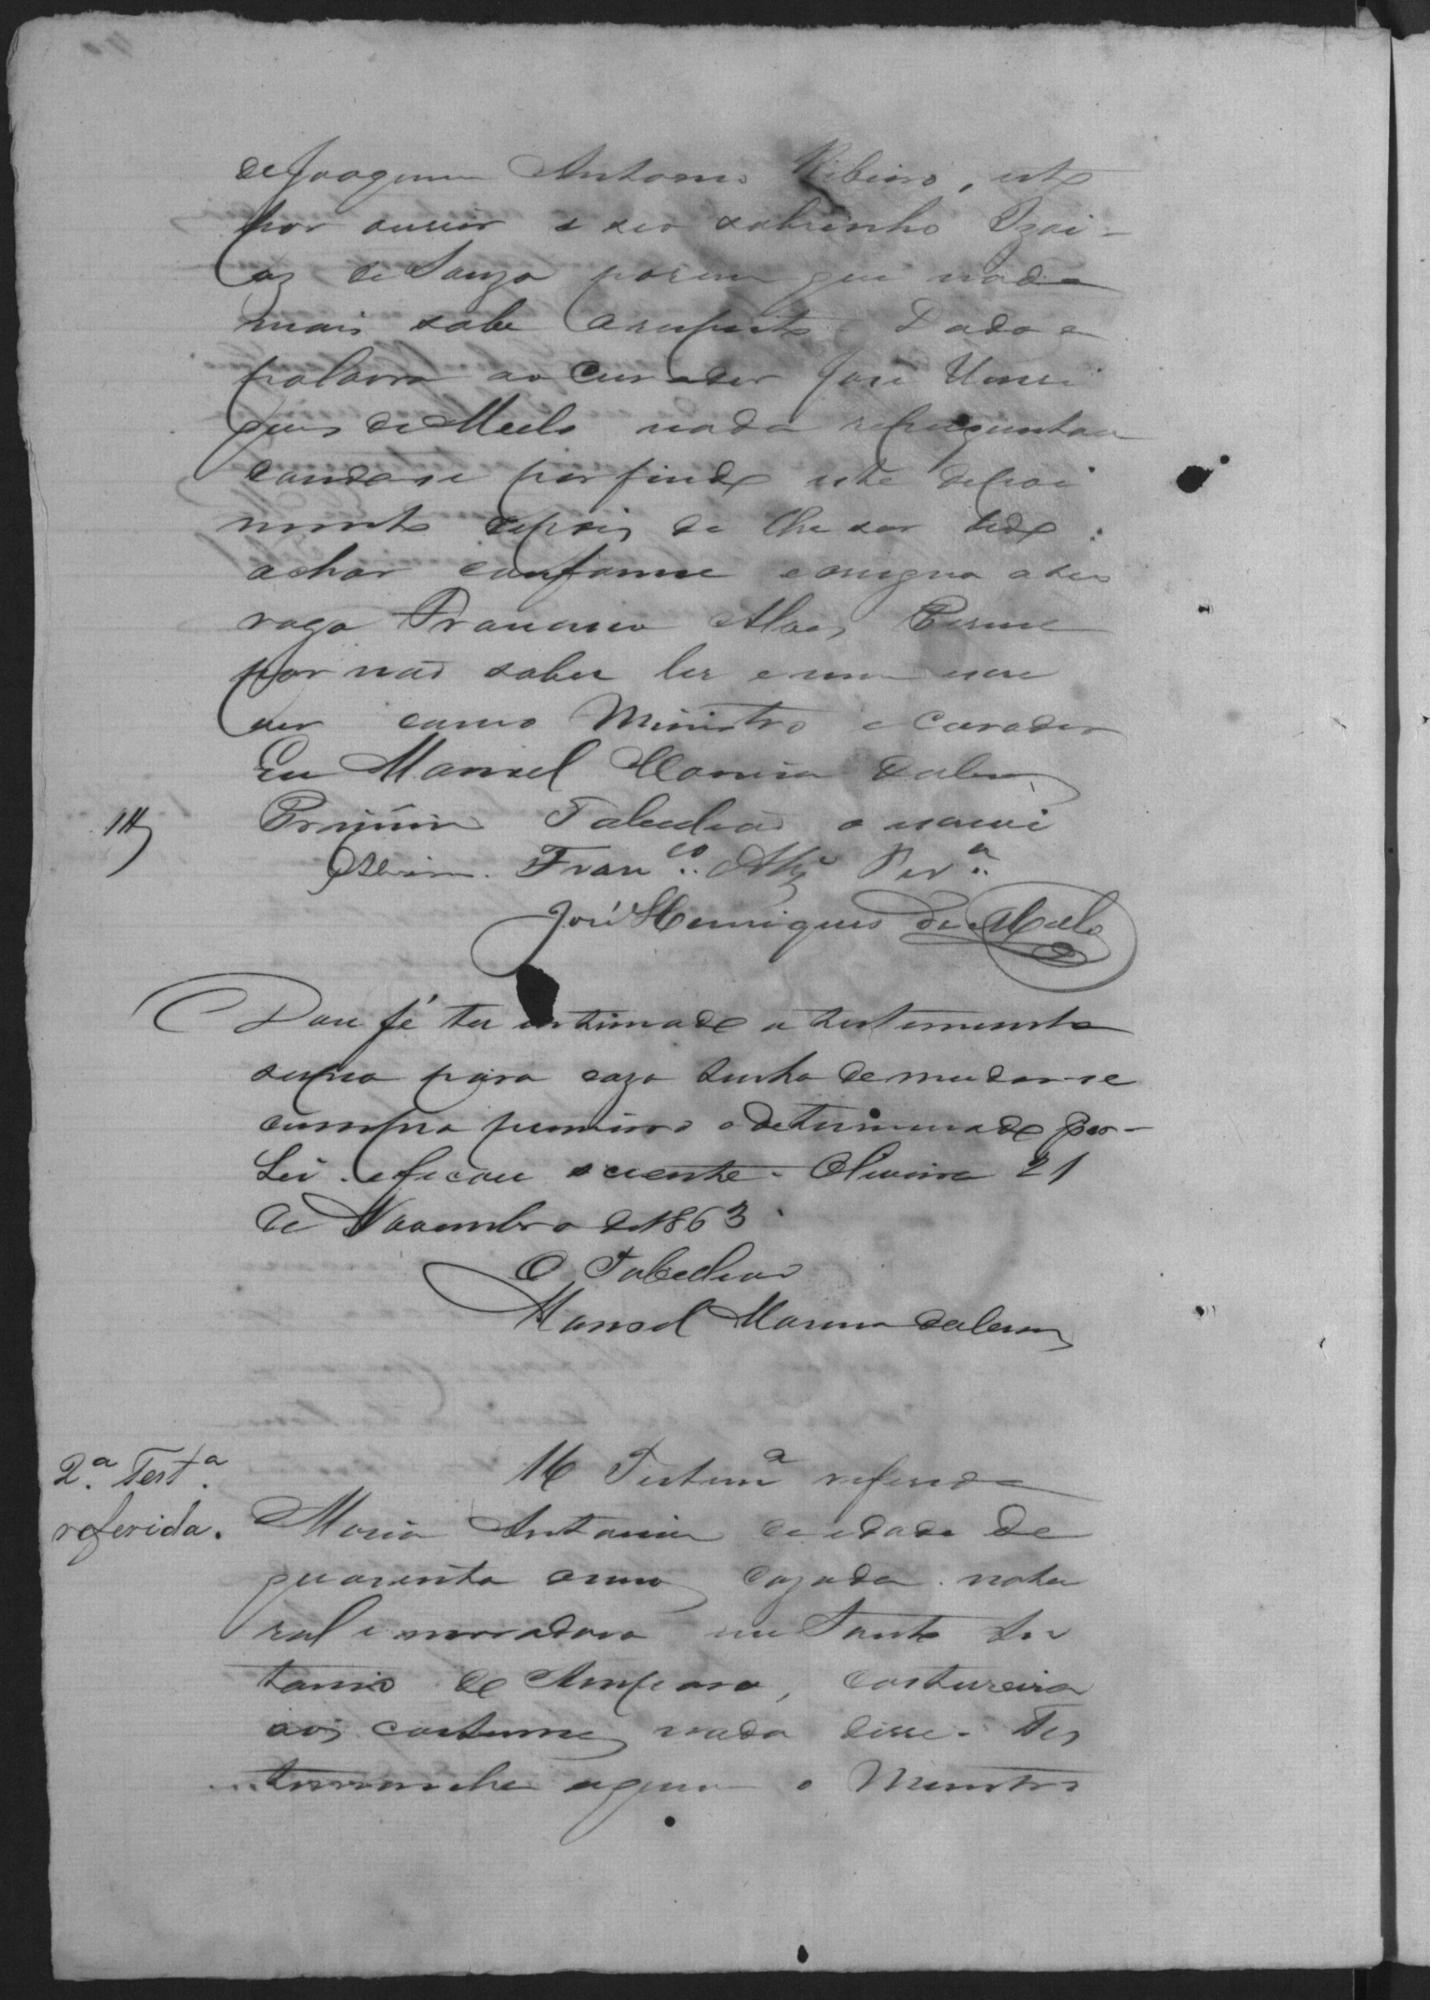 de Joaquim Antonio Ribeiro, isto
por ouvir a seo sobrinho Izai-
as de Souza porem que nada
mais sabe a respeito. Dada a
palavra ao Curador José Henri
ques de Mello nada reperguntou
dando se por findo este depoi
mento depois de lhe ser lido
achar conforme e asigna a seu
rogo Francisco Alves Pereira
por não saber ler e nem escre
ver como Ministro e Curador
Eu Manoel
Primeiro Tabelião o escrevi
Fran.co Alz Per.a
José Henriques de Mello
Dou fé ter intimado a testemunha
supra para cazo tenha de mudar-se
cumpra primeiro o determinado por
Lei. e ficou sciente. Oliveira 21
de Novembro de 1863.
O Tabelião
Manoel
2.a Test.a
referida.
16 Testem.a referida
Maria Antonia de idade de
quarenta annos cazada. natu
ral e moradora em Santo An
tonio do Amparo, costureira
aos costumes nada disse. Tes
o Ministro